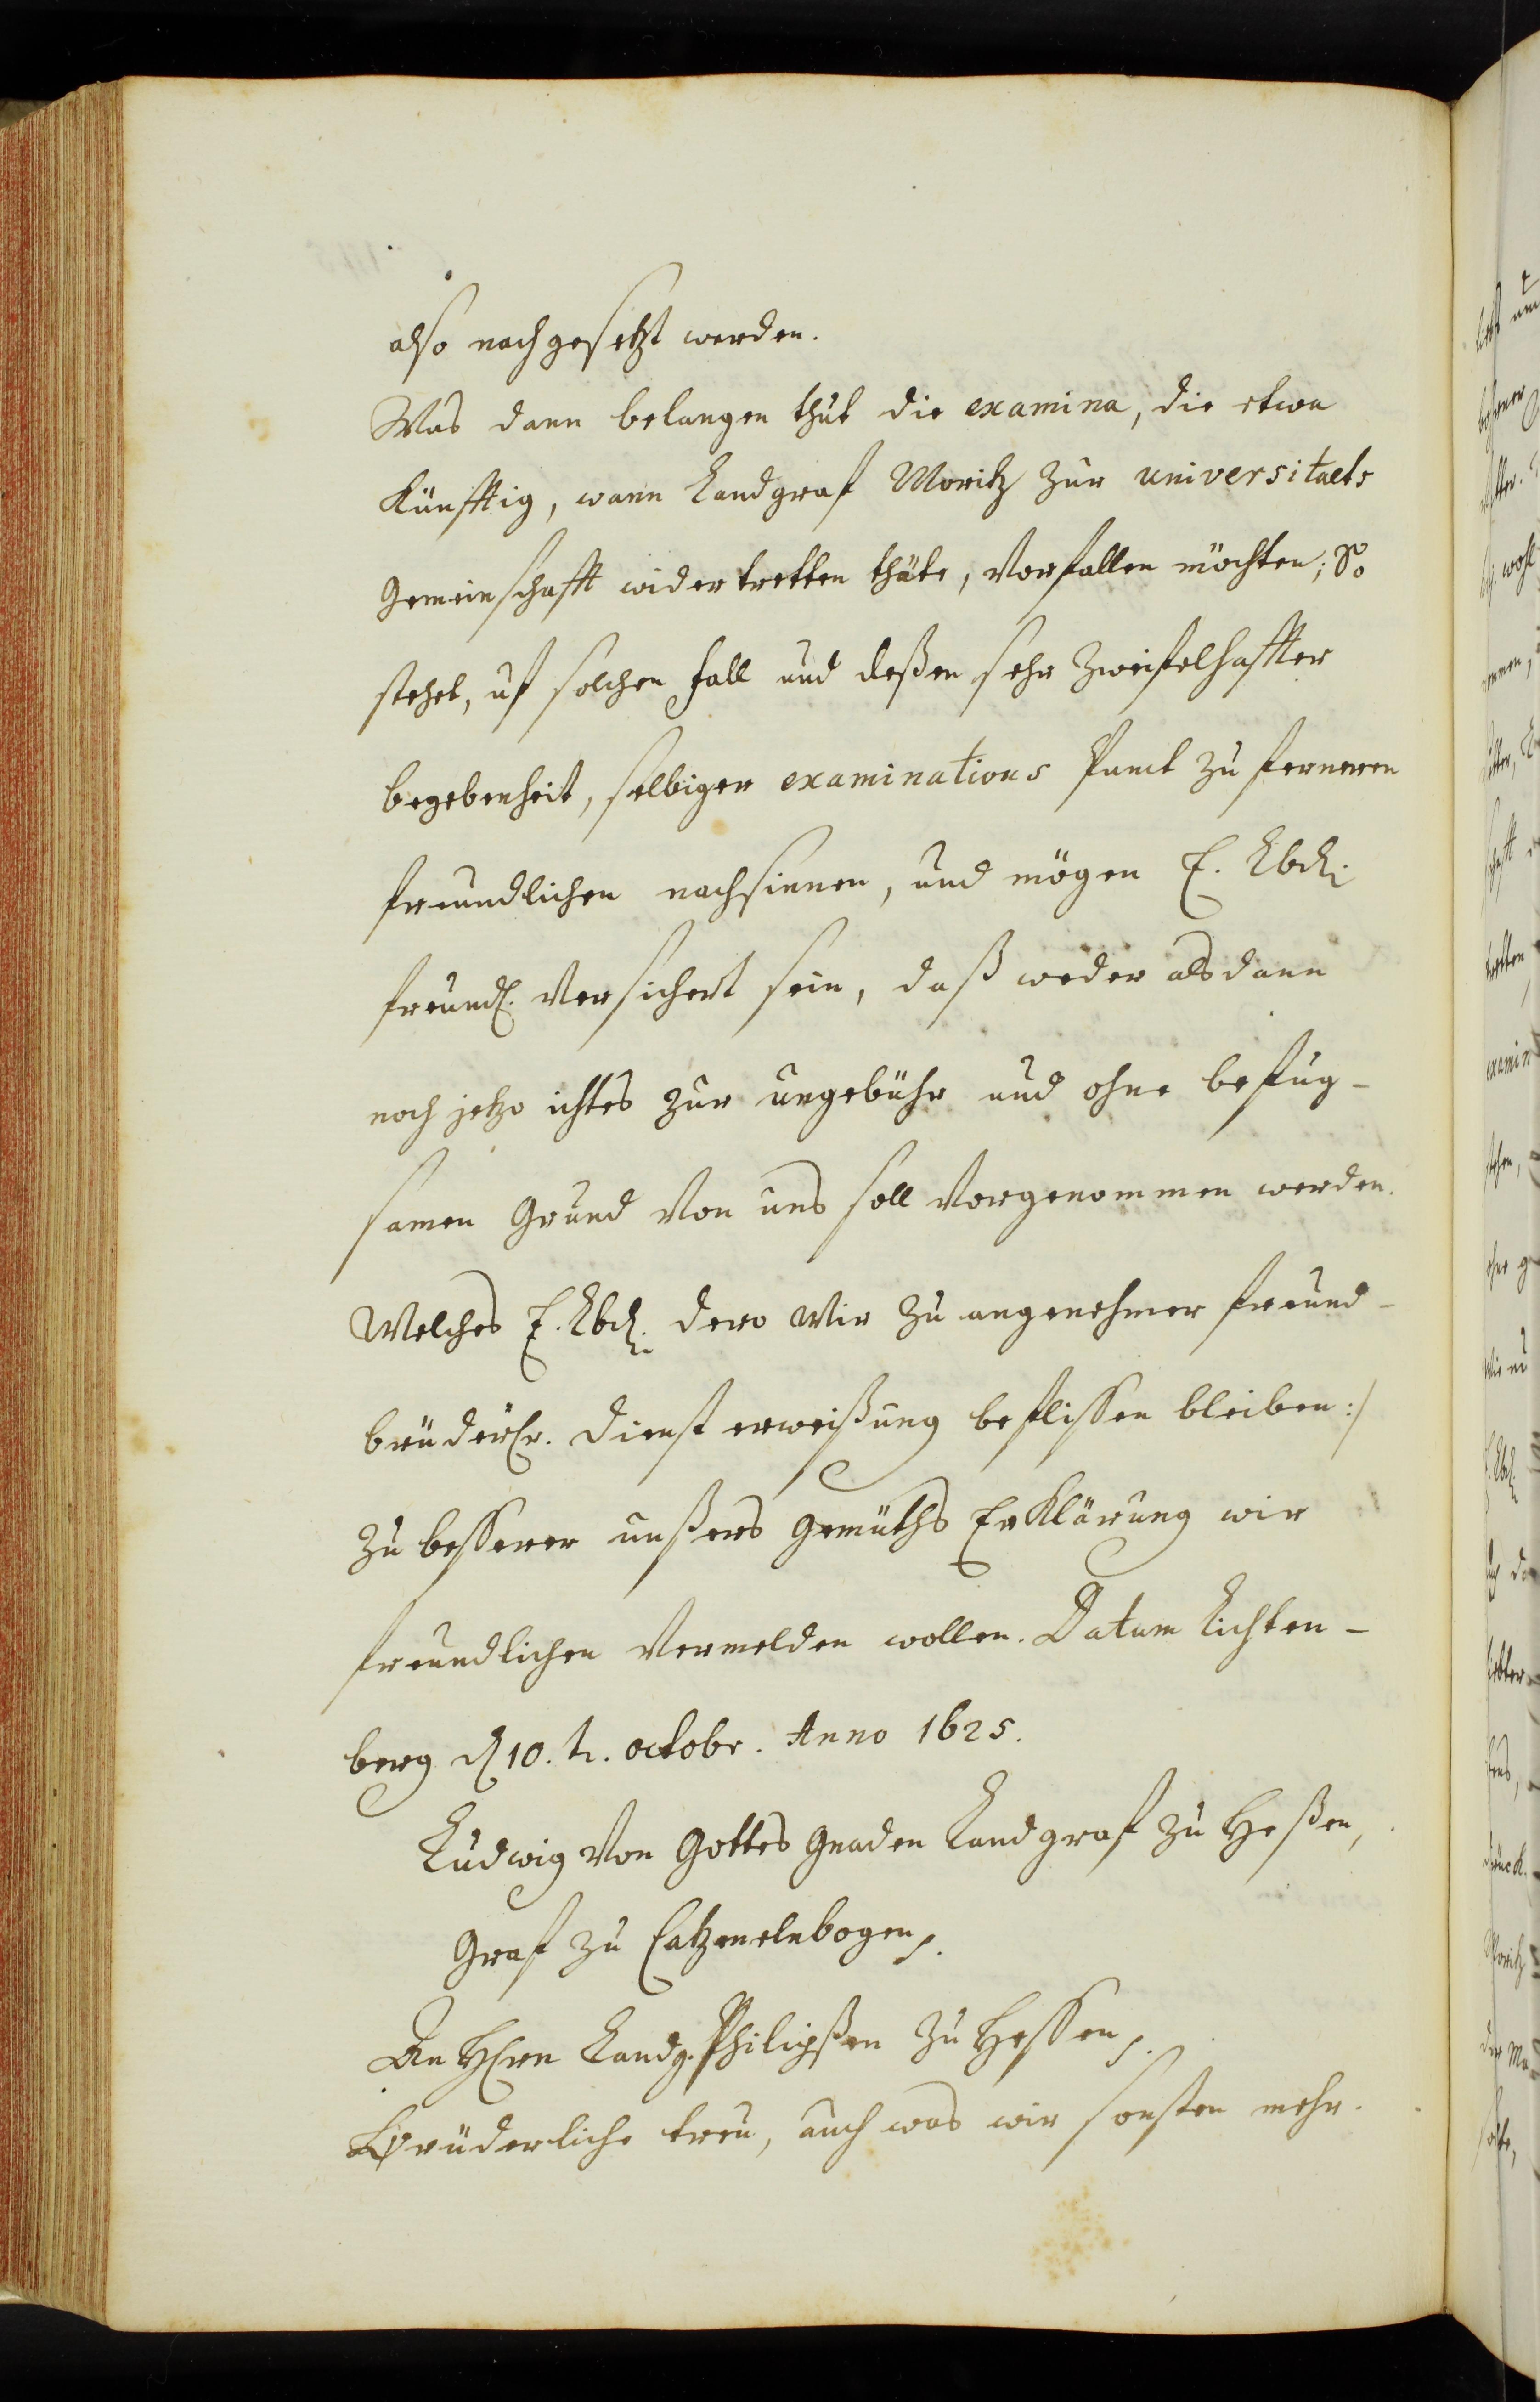 also nachgesetzt werden.
Was dann belangen thut die examina, die etwa
Künfftig, wann Landgraf Moritz zur universitaets
gemeinschafft wider tretten thäte, Vorfallen möchten; So
stehet, uf solchen fall und deßen sehr zweifelhaffter
begebenheit, selbiger examinations Punct zu fernerem
freundlichen nachsinnen, und mögen E. Lbd:
freundl. Versichert sein, daß weder alsdann
noch jetzo ichtes zur ungebühr und ohne befug-
samen Grund Von uns soll Vorgenommen werden.
Welches E. Lbd. dero Wir zu angenehmer freund-
brüderlr. dienst erweißung beflissen bleiben :/
zu besserer unßers gemüths Erklärung wir
freundlichen Vermelden wollen. Datum Lichten-
berg d 10. t. octobr. Anno 1625.
Ludwig Von Gottes Gnaden Landgraf zu Heßen,
Graf zu Catzenelnbogen.
An Herrn Landg. Philipßen zu Hessen.
Brüderliche treu, auch was wir sonsten mehr.